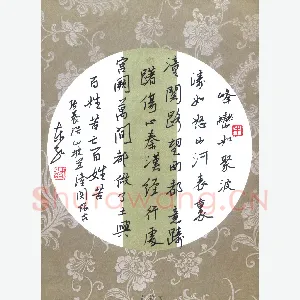 峰巒如聚波
濤如怒山河表裏
潼關路望西都意躊
躇傷心秦漢經行處
宮闕萬間都做了土興
百姓苦亡百姓苦
張養浩山坡羊潼關懷古